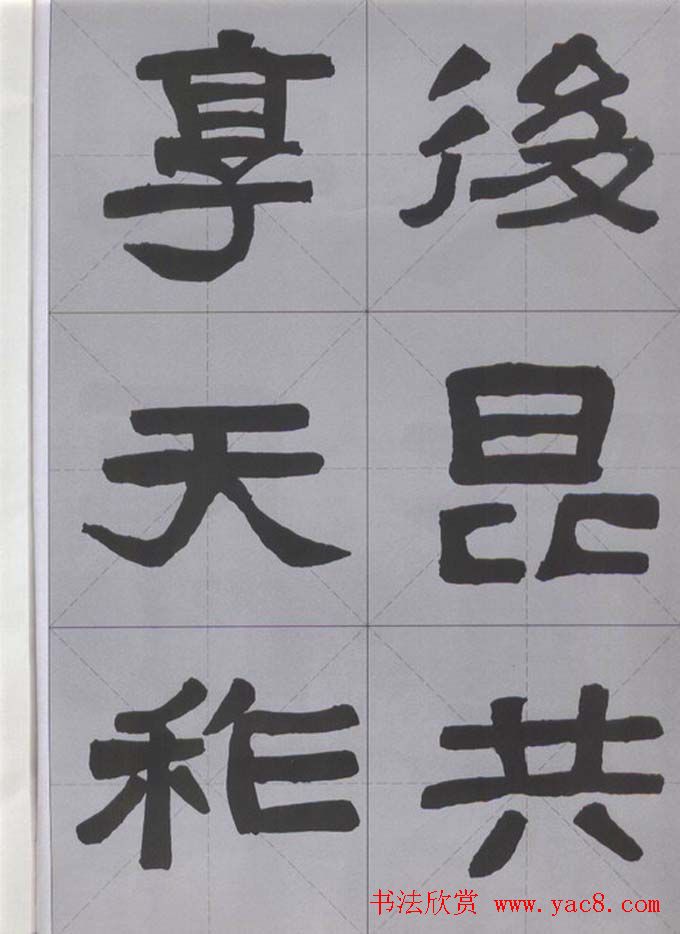 後昆共
享天祚
书法欣赏 www.yac8.com